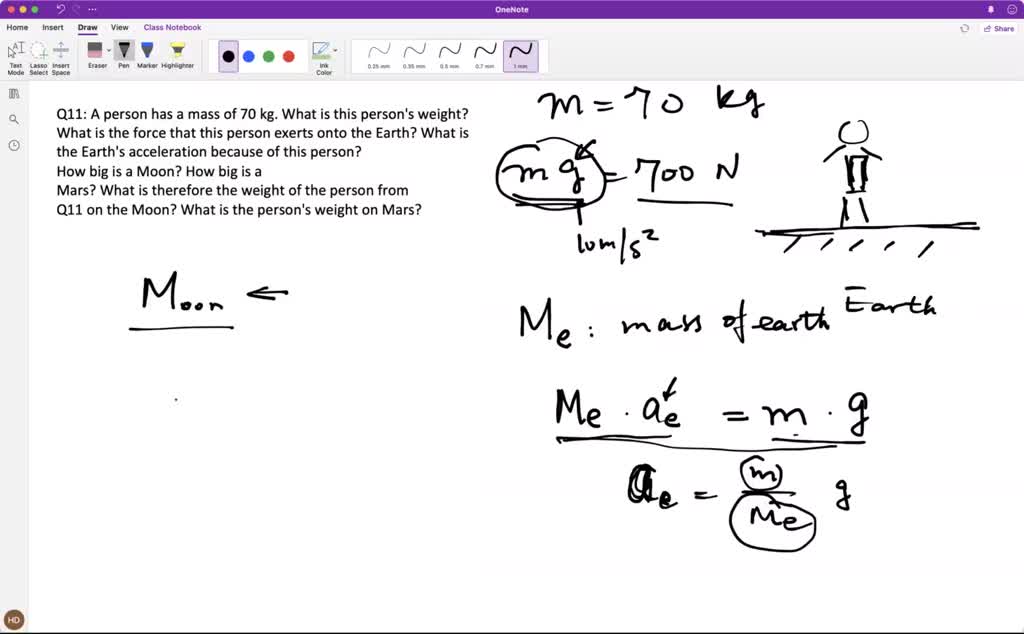 OneNote
Home Insert Draw View Class Notebook
Share
Text Mode
Lasso Select
Insert Space
Eraser
Pen
Marker
Highlighter
Ink Color
0.25 mm
0.35 mm
0.5 mm
0.7 mm
1 mm
Q11: A person has a mass of 70 kg. What is this person's weight?
What is the force that this person exerts onto the Earth? What is
the Earth's acceleration because of this person?
How big is a Moon? How big is a
Mars? What is therefore the weight of the person from
Q11 on the Moon? What is the person's weight on Mars?
m = 70 kg
mg = 700 N
10m/s²
Moon ←
Me : mass of earth Earth
Me · ae = m · g
ae = m/Me g
HD